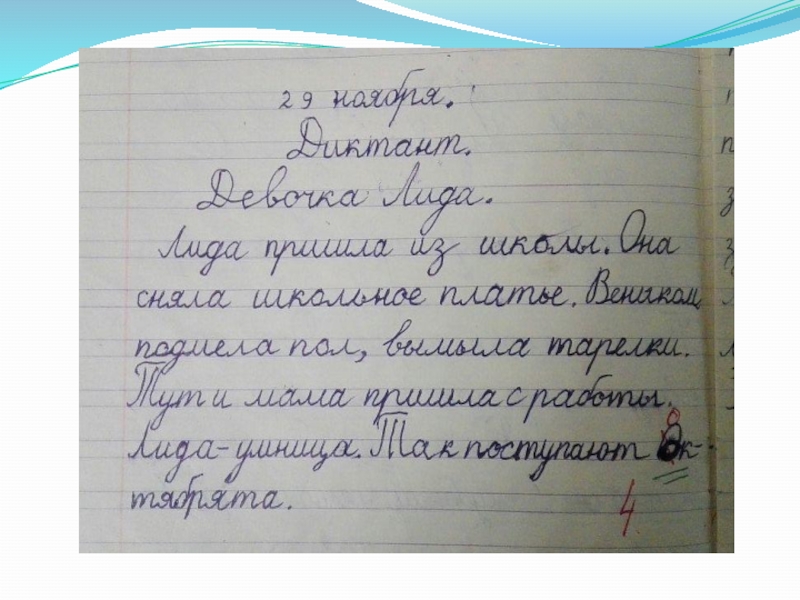 29 ноября.
Диктант.
Девочка Лида.
Лида пришла из школы. Она
сняла школьное платье. Веником
подмела пол, вымыла тарелки.
Тут и мама пришла с работы.
Лида-умница. Так поступают Ок-
тябрята.
4